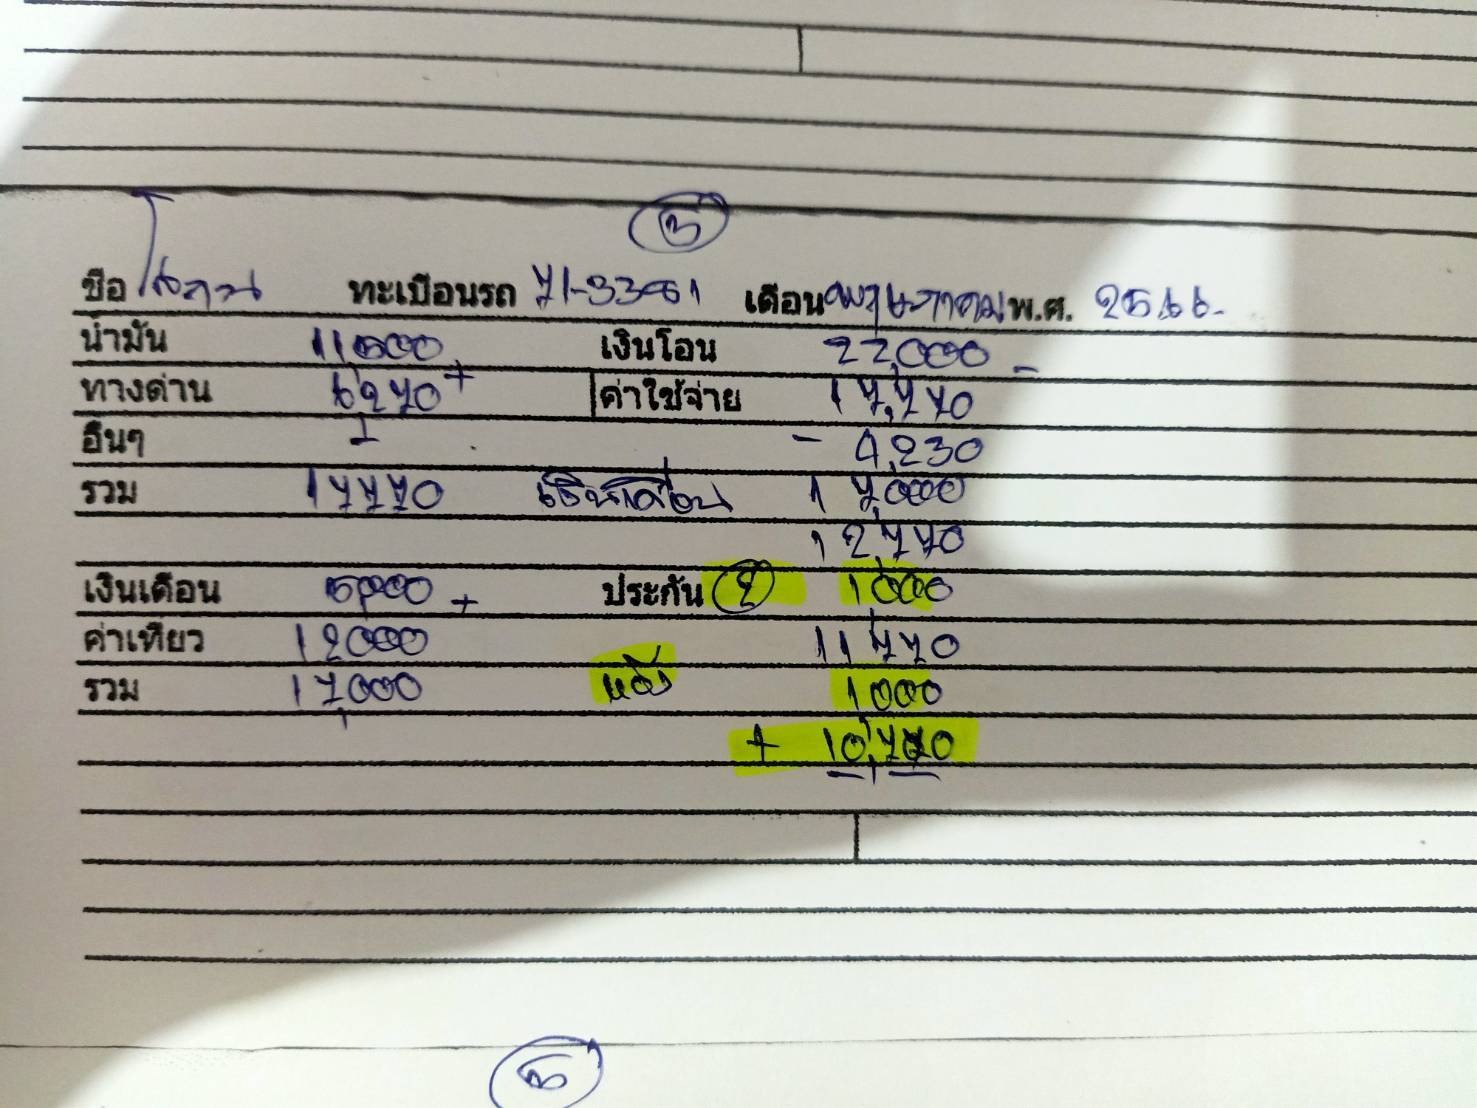 5
ชื่อ โสภณ ทะเบียนรถ 71-3361 เดือน พฤษภาคม พ.ศ. 2566.
น้ำมัน 11500 เงินโอน 22,000 -
ทางด่าน 6270 + ค่าใช้จ่าย 17,770
อื่นๆ - - 4,230
รวม 17770 เงินเดือน 17,000
12,770
เงินเดือน 5,000 + ประกัน 2 1000
ค่าเที่ยว 12000 11,770
รวม 17,000 1000
+ 10,770
5